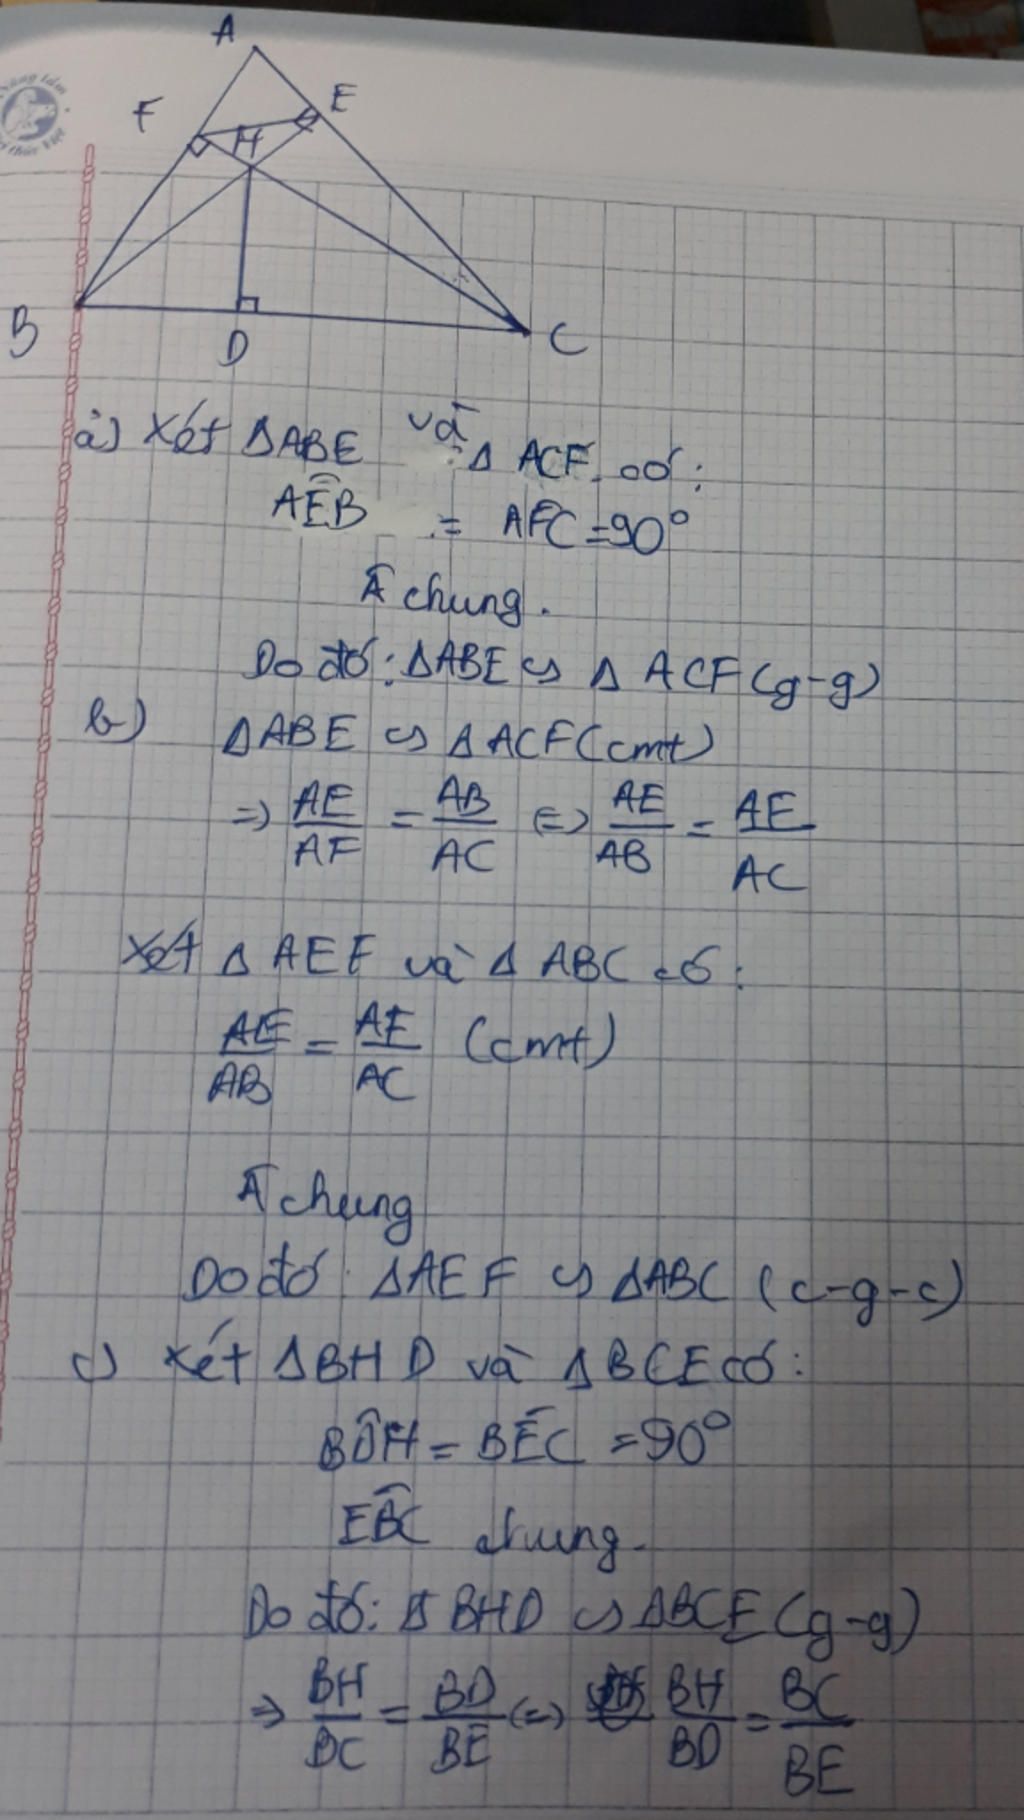 A
F
E
H
B
D
C
a) Xét ΔABE và Δ ACF có:
AÊB = AF̂C = 90°
Â chung.
Do đó: ΔABE ∽ Δ ACF (g-g)
b) ΔABE ∽ ΔACF (cmt)
=> AE/AF = AB/AC <=> AE/AB = AF/AC
Xét Δ AEF và Δ ABC có:
AE/AB = AF/AC (cmt)
Â chung
Do đó: ΔAEF ∽ ΔABC (c-g-c)
c) Xét ΔBHD và ΔBCE có:
BD̂H = BÊC = 90°
EB̂C chung.
Do đó: ΔBHD ∽ ΔBCE (g-g)
=> BH/BC = BD/BE <=> BH/BD = BC/BE